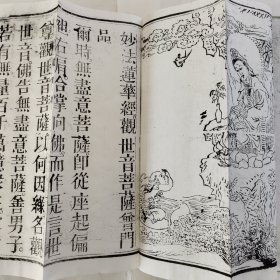 妙法蓮華經觀世音菩薩普門
品
爾時無盡意菩薩即從座起偏
袒右肩合掌向佛而作是言世
尊觀世音菩薩以何因緣名觀
世音佛告無盡意菩薩善男子
若有無量百千萬億